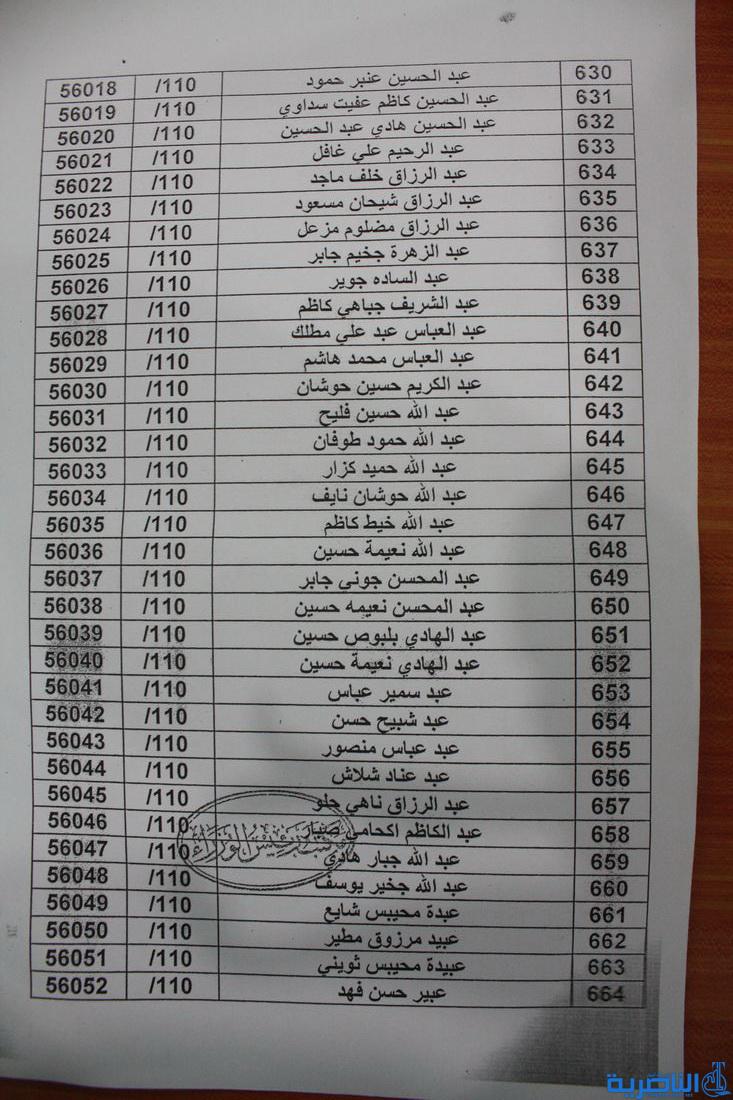 630 عبد الحسين عنبر حمود 110/ 56018
631 عبد الحسين كاظم عفيت سداوي 110/ 56019
632 عبد الحسين هادي عبد الحسين 110/ 56020
633 عبد الرحيم علي غافل 110/ 56021
634 عبد الرزاق خلف ماجد 110/ 56022
635 عبد الرزاق شيحان مسعود 110/ 56023
636 عبد الرزاق مضلوم مزعل 110/ 56024
637 عبد الزهرة جخيم جابر 110/ 56025
638 عبد الساده جوير 110/ 56026
639 عبد الشريف جباهي كاظم 110/ 56027
640 عبد العباس عبد علي مطلك 110/ 56028
641 عبد العباس محمد هاشم 110/ 56029
642 عبد الكريم حسين حوشان 110/ 56030
643 عبد الله حسين فليح 110/ 56031
644 عبد الله حمود طوفان 110/ 56032
645 عبد الله حميد كزار 110/ 56033
646 عبد الله حوشان نايف 110/ 56034
647 عبد الله خيط كاظم 110/ 56035
648 عبد الله نعيمة حسين 110/ 56036
649 عبد المحسن جوني جابر 110/ 56037
650 عبد المحسن نعيمه حسين 110/ 56038
651 عبد الهادي بلبوص حسين 110/ 56039
652 عبد الهادي نعيمة حسين 110/ 56040
653 عبد سمير عباس 110/ 56041
654 عبد شبيح حسن 110/ 56042
655 عبد عباس منصور 110/ 56043
656 عبد عناد شلاش 110/ 56044
657 عبد الرزاق ناهي حلو 110/ 56045
658 عبد الكاظم اكحامي صبار 110/ 56046
659 عبد الله جبار هادي 110/ 56047
660 عبد الله جخير يوسف 110/ 56048
661 عبدة محيبس شايع 110/ 56049
662 عبيد مرزوق مطير 110/ 56050
663 عبيدة محيبس ثويني 110/ 56051
664 عبير حسن فهد 110/ 56052
مكتب رئيس الوزراء
الناصرية